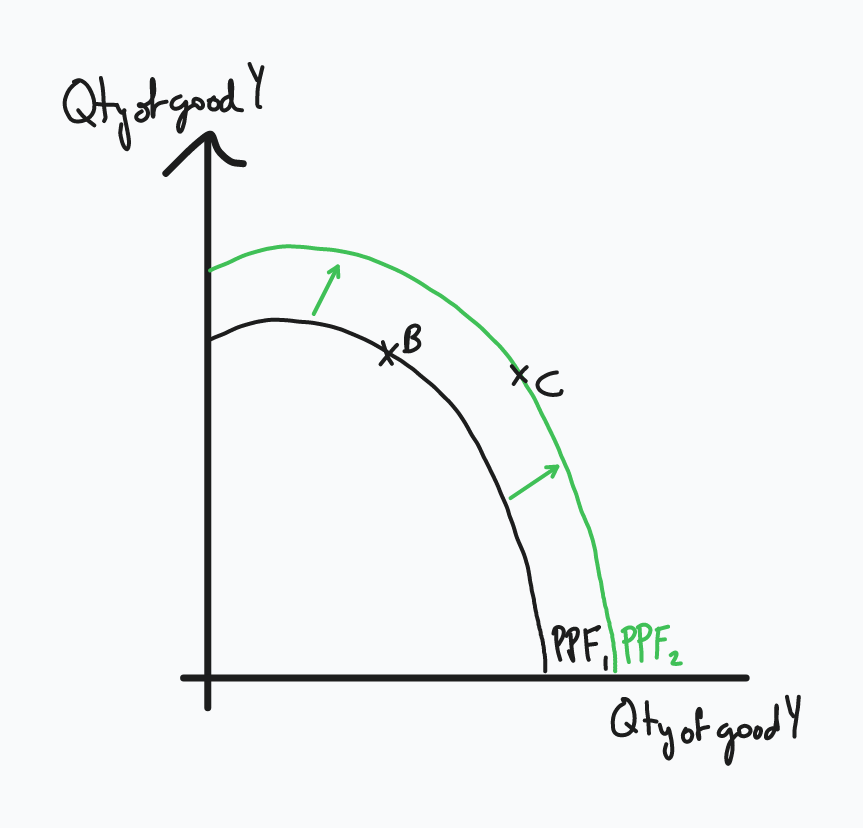 Qty of good Y
B
C
PPF₁ PPF₂
Qty of good Y